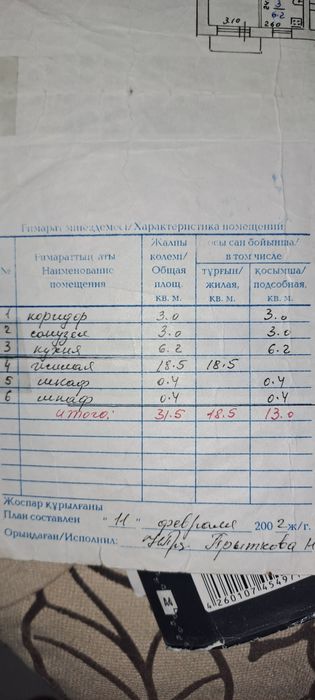 3
6.2
3.10
2.60
Ғимарат мінездемесі/Характеристика помещений
№
Ғимараттың аты
Наименование
помещения
Жалпы
көлемі/
Общая
площ.
кв. м.
осы сан бойынша/
в том числе
тұрғын/
жилая,
кв. м.
қосымша/
подсобная,
кв. м.
1 коридор 3.0 3.0
2 санузел 3.0 3.0
3 кухня 6.2 6.2
4 жилая 18.5 18.5
5 шкаф 0.4 0.4
6 шкаф 0.4 0.4
итого: 31.5 18.5 13.0
Жоспар құрылғаны
План составлен "11" февраля 2002 ж/г.
Орындаған/Исполнил: Прыткова Н
M
4 260107 45497